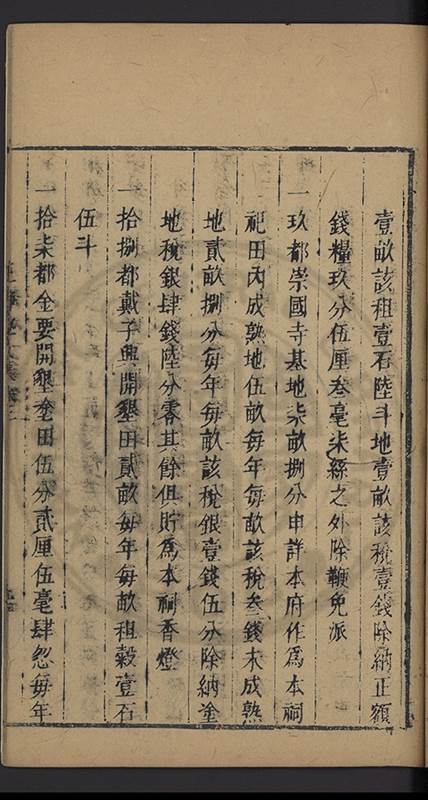 壹畝該租壹石陸斗地壹畝該税壹錢除納正額
錢糧玖分伍厘叁毫柒絲之外除鞭免派
一玖都崇國寺基地柒畝捌分申詳本府作爲本祠
祀田内成熟地伍畝每年每畝該税叁錢未成熟
地貳畝捌分每年每畝該税銀壹錢伍分除納塗
地税銀肆錢陸分零其餘俱貯爲本祠香燈
一拾捌都戴子興開墾田貳畝每年每畝租穀壹石
伍斗
一拾柒都金要開墾塗田伍分貳厘伍毫肆忽每年